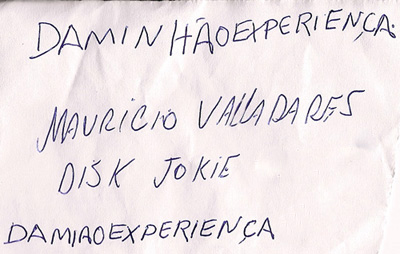 DAMINHÃOEXPERIENÇA.
MAURICIO VALLADARES
DISK JOKIE
DAMIAOEXPERIENÇA